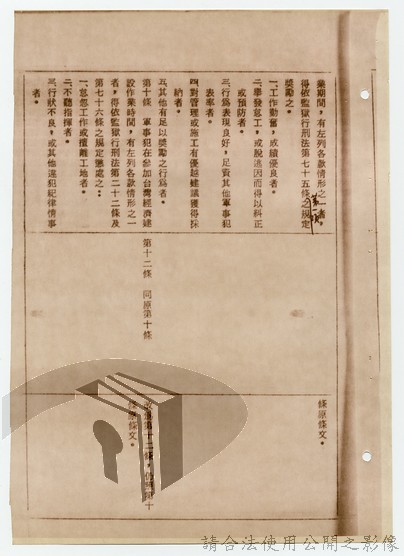 業期間，有左列各款情形之一者，
得依監獄行刑法第七十五條之規定
第一項
獎勵之。
一、工作勤奮，成績優良者。
二、舉發怠工，或脫逃因而得以糾正
或預防者。
三、行為表現良好，足資其他軍事犯
表率者。
四、對管理或施工有優越建議獲得採
納者。
五、其他有足以獎勵之行為者。
第十條　軍事犯在參加台灣經濟建
設作業時間，有左列各款情形之一
者，得依監獄行刑法第二十二條及
第七十六條之規定懲處之：
一、怠忽工作或擅離工地者。
二、不聽指揮者。
三、行狀不良，或其他違犯紀律情事
者。
第十二條　同原第十條
條原條文。
條原條文。
請合法使用公開之影像